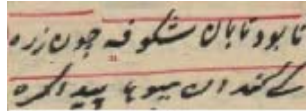 تا بود تابان شکوفه چون زره
کے کند آن میوها پیدا گره